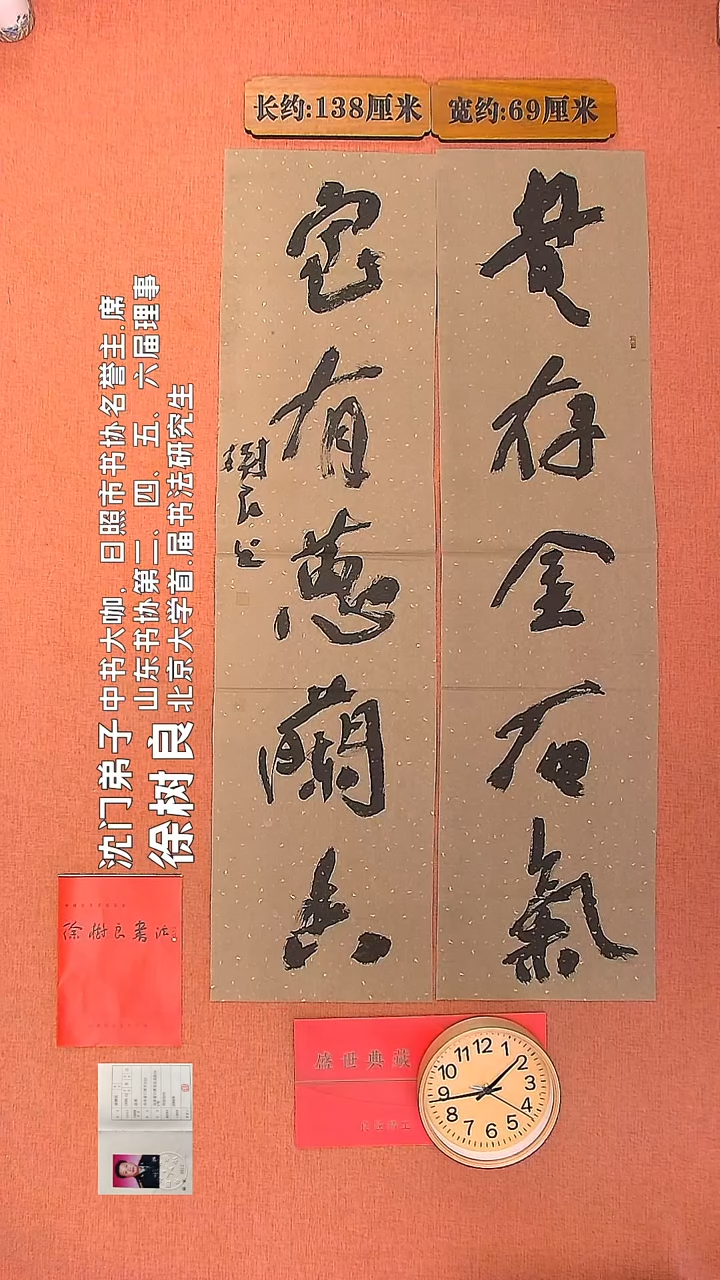 长约:138厘米
宽约:69厘米
書存金石氣
室有蕙蘭香
樹良书
沈门弟子
徐树良
中书大咖,日照市书协名誉主.席
山东书协第三、四、五、六届理事
北京大学首.届书法研究生
徐樹良書法
盛世典藏
12
1
2
3
4
5
6
7
8
9
10
11